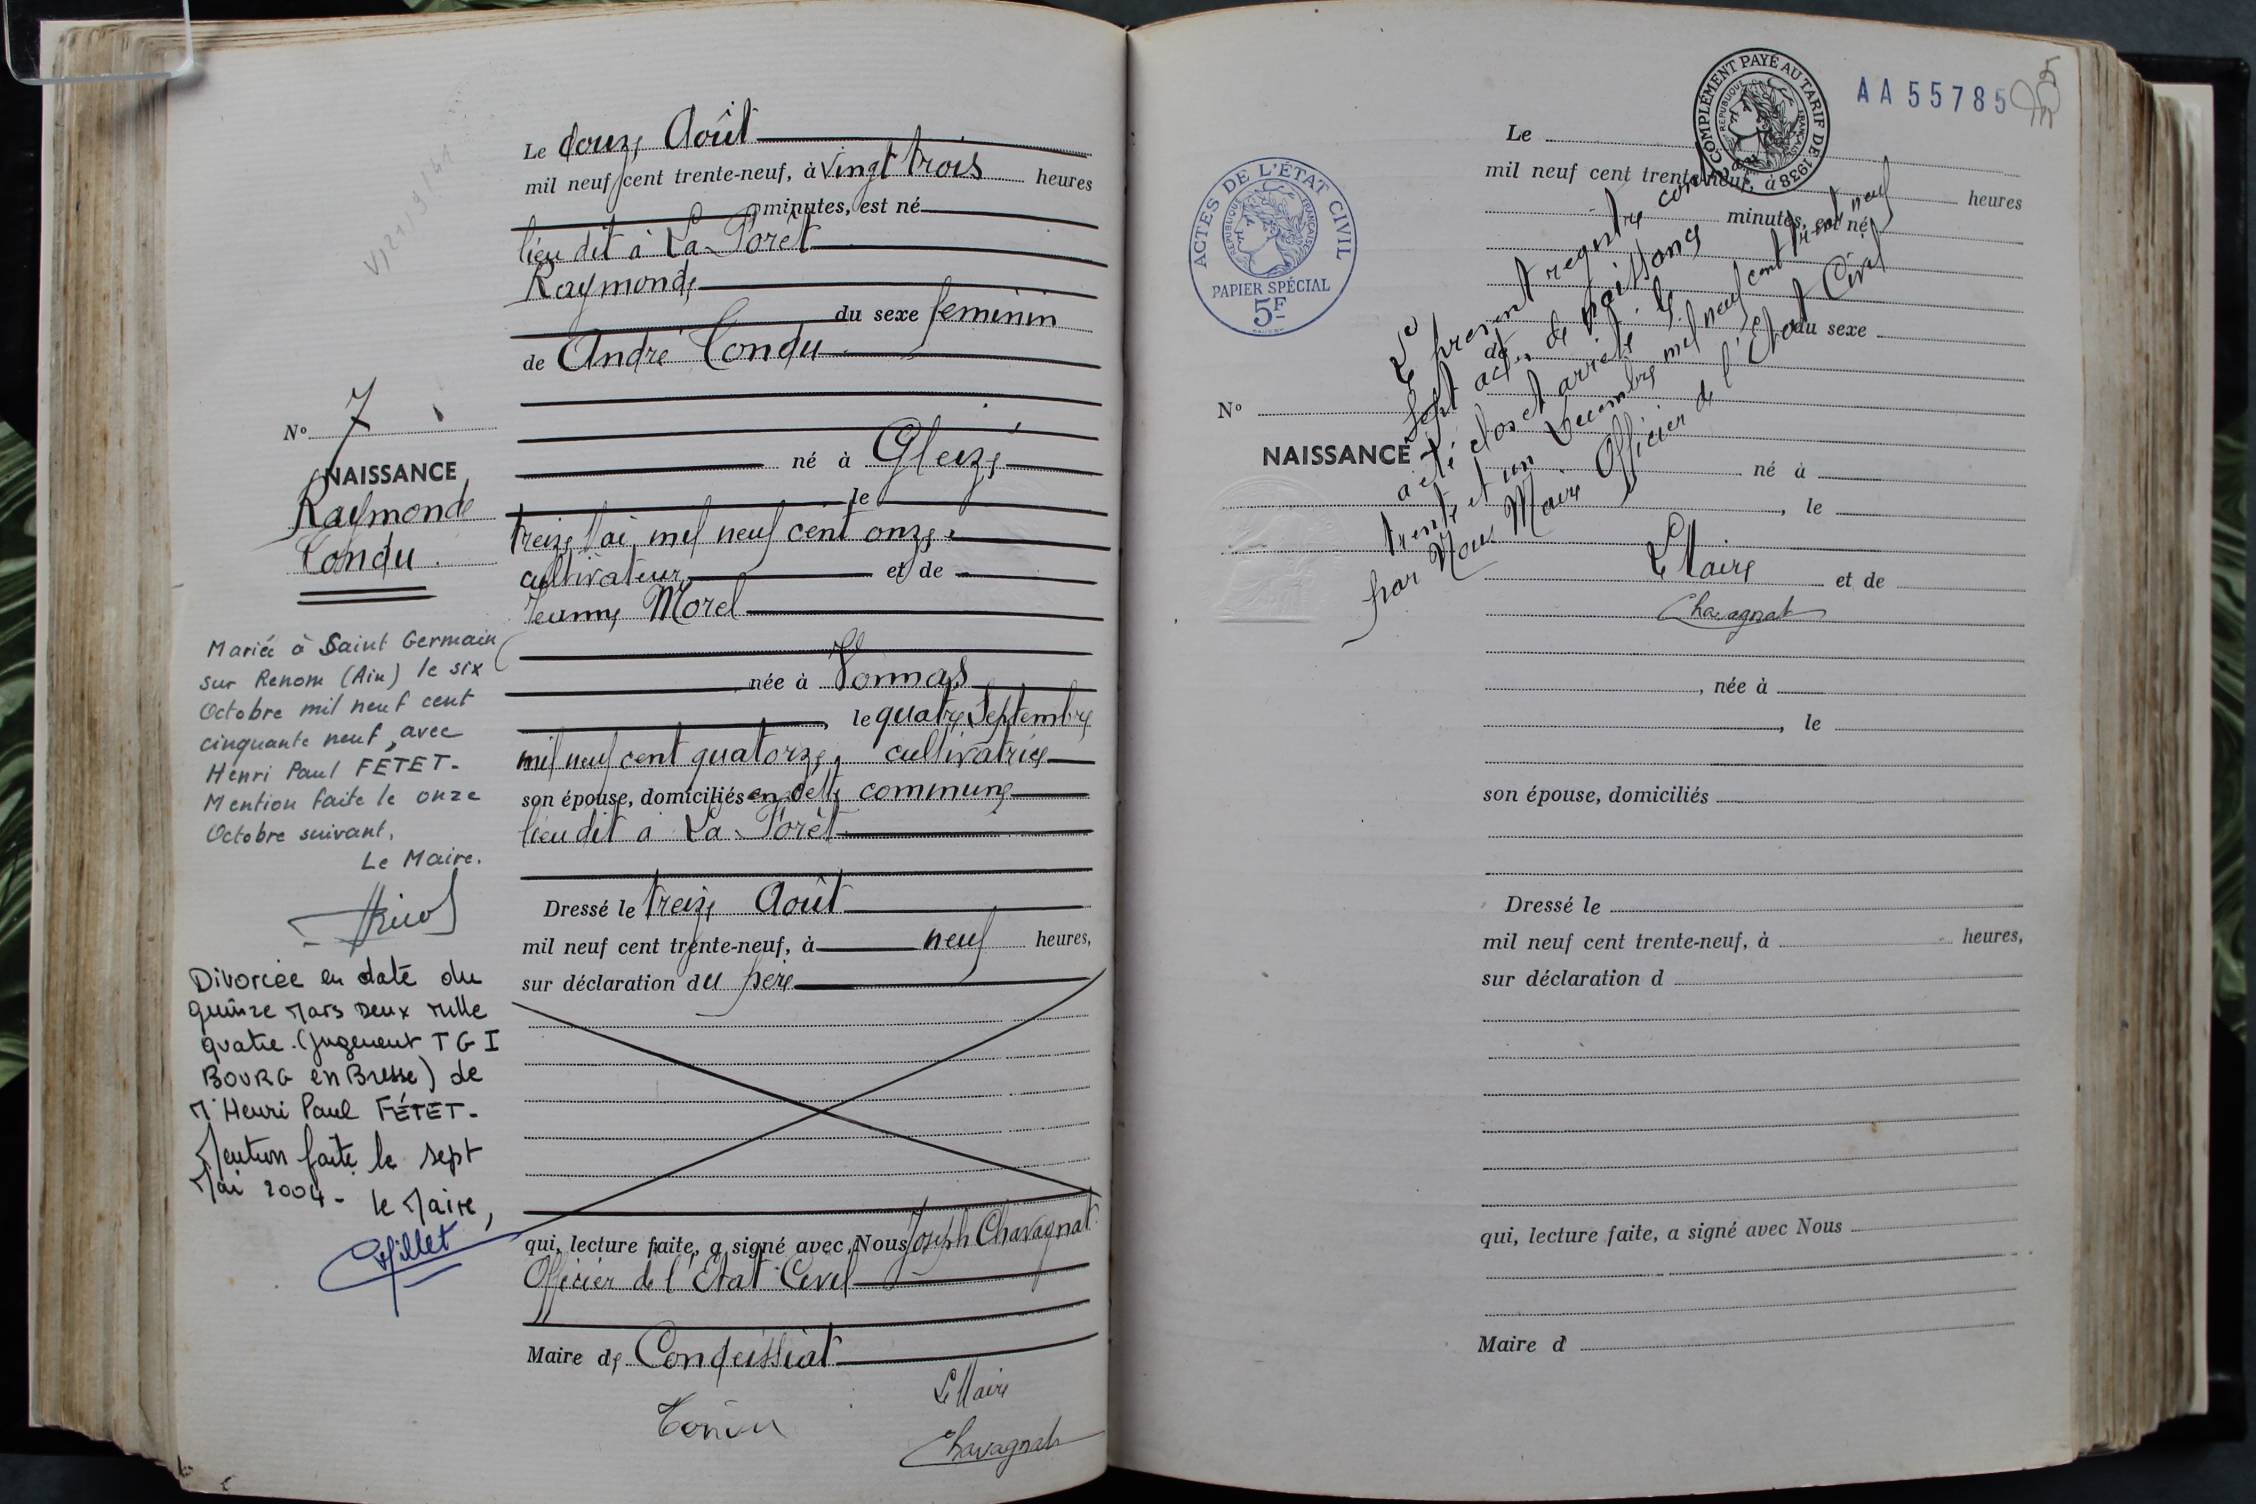 Le douze Août
mil neuf cent trente-neuf, à vingt trois heures
minutes, est né
lieu dit à La Forêt
Raymonde
du sexe feminin
de André Tondu
né à Gleizé
le
treize Mai mil neuf cent onze
cultivateur et de
Jeanne Morel
née à Vonnas
, le quatre Septembre
mil neuf cent quatorze, cultivatrice
son épouse, domiciliés en cette commune
lieu dit à La Forêt
Dressé le treize Août
mil neuf cent trente-neuf, à neuf heures,
sur déclaration du père
qui, lecture faite, a signé avec Nous Joseph Chavagnat
Officier de l'Etat Civil
Maire de Condeissiat
Tondu
Le Maire
Chavagnat
No 7
NAISSANCE
Raymonde
Tondu.
Mariée à Saint Germain
sur Renom (Ain) le six
Octobre mil neuf cent
cinquante neuf, avec
Henri Paul FETET-
Mention faite le onze
Octobre suivant.
Le Maire.
Divorcée en date du
quinze Mars Deux mille
quatre. (jugement TGI
BOURG en Bresse) de
M. Henri Paul FÉTET-
Mention faite le sept
Mai 2004- le Maire,
Gillet
AA55785
5
COMPLÉMENT PAYÉ AU TARIF DE 1938
REPUBLIQUE FRANÇAISE
ACTES DE L'ÉTAT CIVIL
REPUBLIQUE FRANÇAISE
PAPIER SPÉCIAL
5F
Le
mil neuf cent trente-neuf, à heures
minutes, est né
du sexe
de
No
NAISSANCE
né à
, le
et de
, née à
, le
son épouse, domiciliés
Dressé le
mil neuf cent trente-neuf, à heures,
sur déclaration d
qui, lecture faite, a signé avec Nous
Maire d
Le present registre contenant
Sept actes de naissance
a été clos et arrêté le
trente et un Decembre mil neuf cent trente neuf
par Nous Maire Officier de l'Etat Civil
Le Maire
Chavagnat